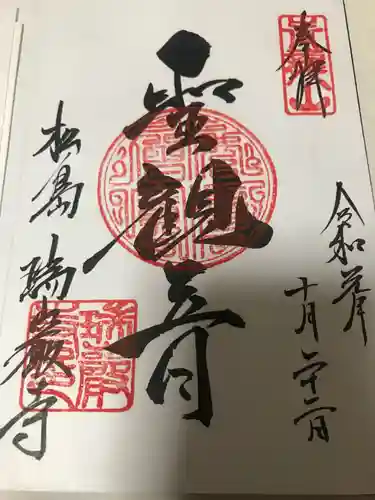 奉拝
令和元年
十月二十二日
聖観音
松島 瑞巌寺